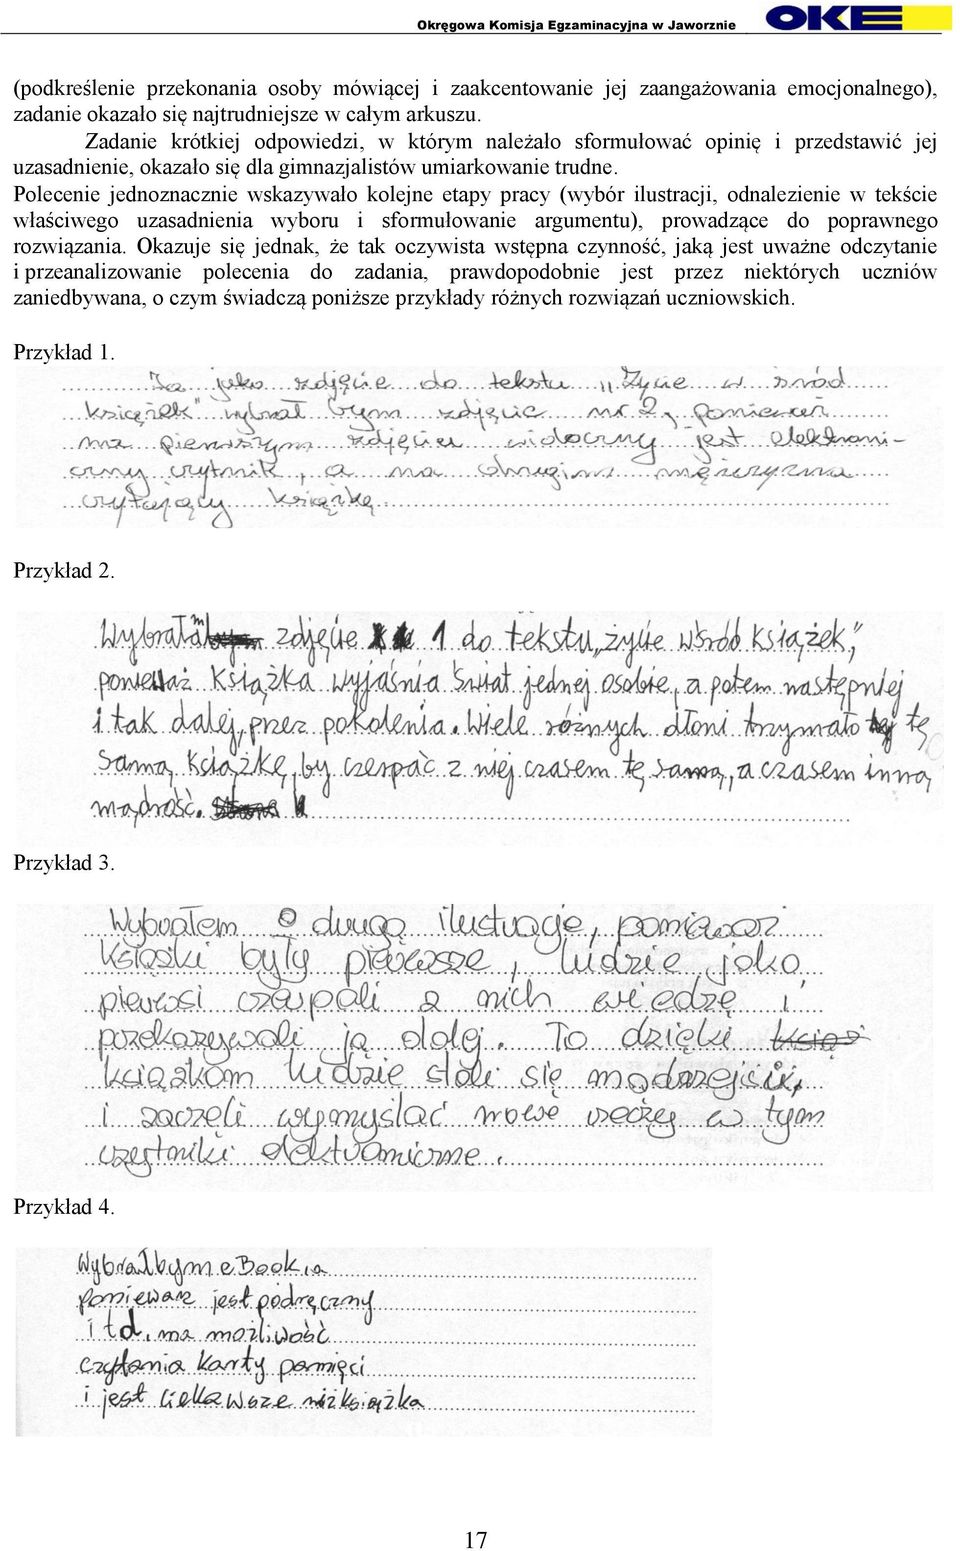 Okręgowa Komisja Egzaminacyjna w Jaworznie
OKE
(podkreślenie przekonania osoby mówiącej i zaakcentowanie jej zaangażowania emocjonalnego),
zadanie okazało się najtrudniejsze w całym arkuszu.
Zadanie krótkiej odpowiedzi, w którym należało sformułować opinię i przedstawić jej
uzasadnienie, okazało się dla gimnazjalistów umiarkowanie trudne.
Polecenie jednoznacznie wskazywało kolejne etapy pracy (wybór ilustracji, odnalezienie w tekście
właściwego uzasadnienia wyboru i sformułowanie argumentu), prowadzące do poprawnego
rozwiązania. Okazuje się jednak, że tak oczywista wstępna czynność, jaką jest uważne odczytanie
i przeanalizowanie polecenia do zadania, prawdopodobnie jest przez niektórych uczniów
zaniedbywana, o czym świadczą poniższe przykłady różnych rozwiązań uczniowskich.
Przykład 1.
Ja jako zdjęcie do tekstu „Życie w śród
książek" wybrał bym zdjęcie nr 2, ponieważ
ma pierwszym zdjęciu widoczny jest elektroni-
czny czytnik, a na drugim mężczyzna
czytający książkę.
Przykład 2.
Wybrałam zdjęcie 1 do tekstu „życie wśród książek",
ponieważ książka wyjaśnia świat jednej osobie, a potem następnej
i tak dalej, przez pokolenia. Wiele różnych dłoni trzymało tę
samą książkę, by czerpać z niej czasem tę samą, a czasem inną
mądrość.
Przykład 3.
Wybrałem drugą ilustrację, ponieważ
książki były pierwsze, ludzie jako
pierwsi czerpali z nich wiedzę i
przekazywali ją dalej. To dzięki
książkom ludzie stali się mądrzejsi,
i zaczęli wymyslać nowe rzeczy w tym
czytniki elektroniczne.
Przykład 4.
Wybrałbym eBooka
ponieważ jest podręczny
i td. ma możliwość
czytania karty pamięci
i jest ciekawsze niż książka
17